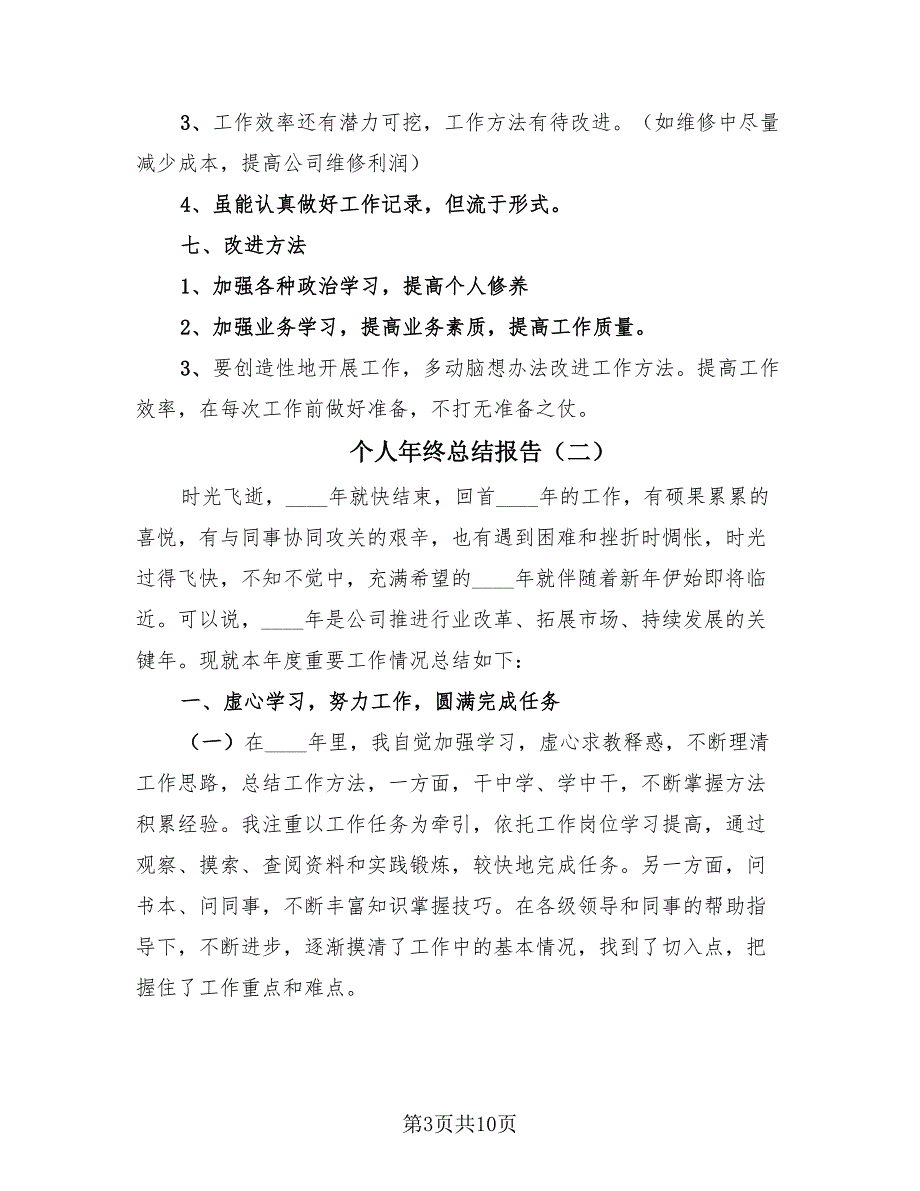 3、工作效率还有潜力可挖，工作方法有待改进。（如维修中尽量
减少成本，提高公司维修利润）
4、虽能认真做好工作记录，但流于形式。
七、改进方法
1、加强各种政治学习，提高个人修养
2、加强业务学习，提高业务素质，提高工作质量。
3、要创造性地开展工作，多动脑想办法改进工作方法。提高工作
效率，在每次工作前做好准备，不打无准备之仗。
个人年终总结报告（二）
时光飞逝，____年就快结束，回首____年的工作，有硕果累累的
喜悦，有与同事协同攻关的艰辛，也有遇到困难和挫折时惆怅，时光
过得飞快，不知不觉中，充满希望的____年就伴随着新年伊始即将临
近。可以说，____年是公司推进行业改革、拓展市场、持续发展的关
键年。现就本年度重要工作情况总结如下：
一、虚心学习，努力工作，圆满完成任务
（一）在____年里，我自觉加强学习，虚心求教释惑，不断理清
工作思路，总结工作方法，一方面，干中学、学中干，不断掌握方法
积累经验。我注重以工作任务为牵引，依托工作岗位学习提高，通过
观察、摸索、查阅资料和实践锻炼，较快地完成任务。另一方面，问
书本、问同事，不断丰富知识掌握技巧。在各级领导和同事的帮助指
导下，不断进步，逐渐摸清了工作中的基本情况，找到了切入点，把
握住了工作重点和难点。
第3页共10页